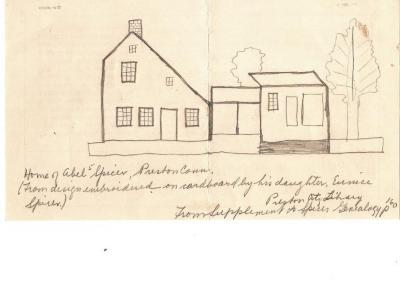 Home of Abel⁵ Spicer, Preston Conn.
(From design embroidered on cardboard by his daughter, Eunice
Spicer.)
Preston City Library
From Supplement to Spicer Genealogy, p 160